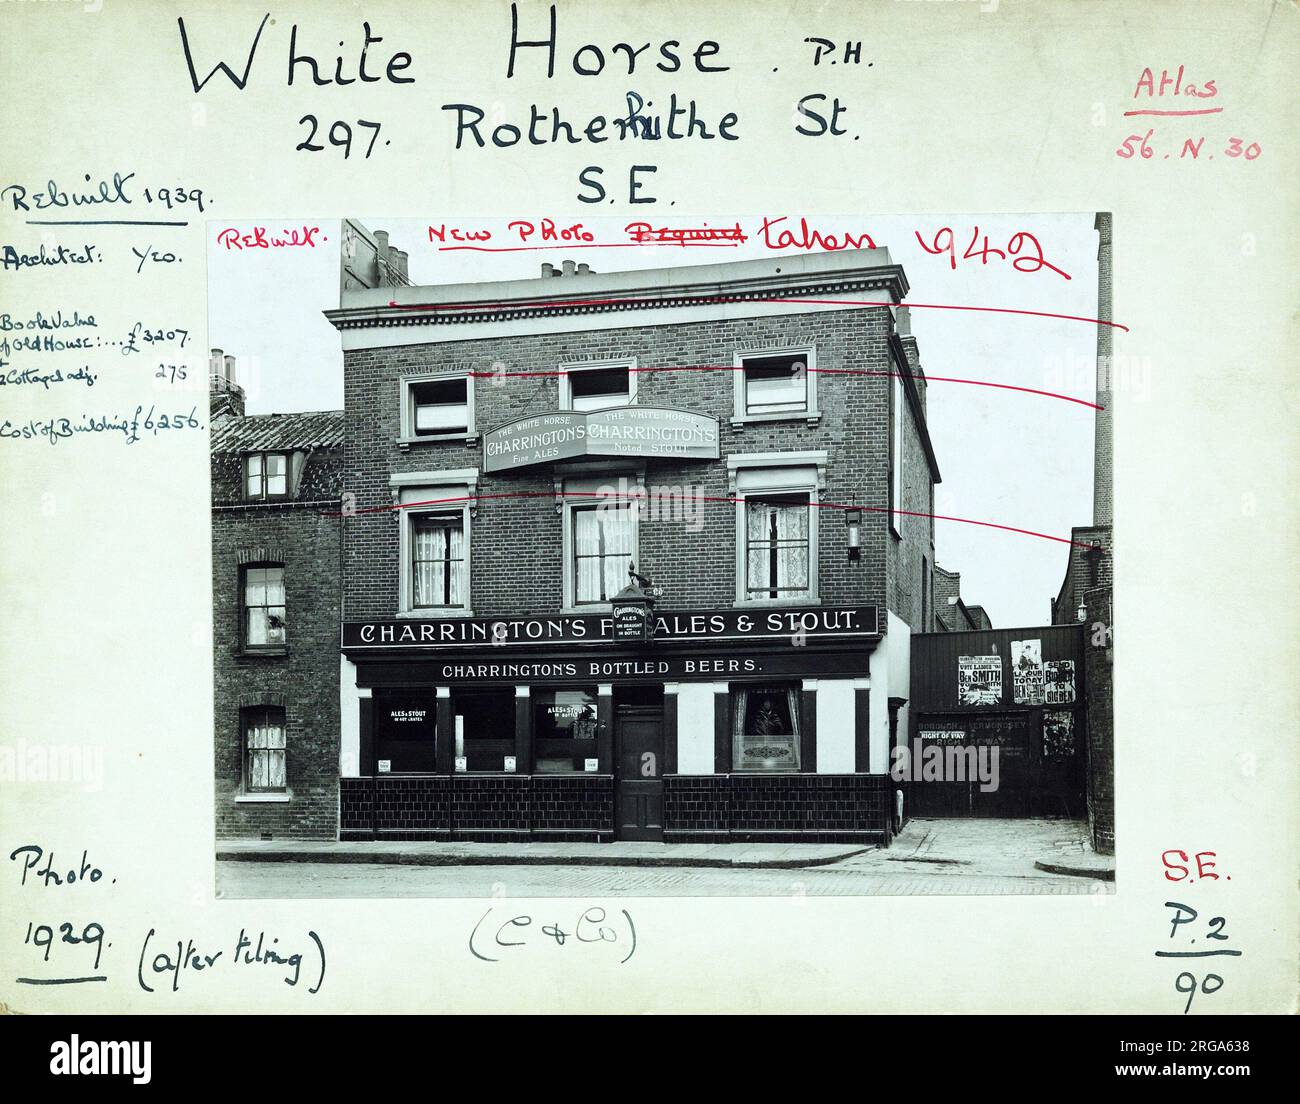 White Horse. P.H.
297. Rotherhithe St.
S.E.
Atlas
56.N.30
Rebuilt 1939.
Architect: Yeo.
Book Value
of Old House:... £3,207.
+
2 Cottages adj. 275
Cost of Building £6,256.
Rebuilt.
New Photo Required taken 1942
THE WHITE HORSE
CHARRINGTON'S
Fine ALES
THE WHITE HORSE
CHARRINGTON'S
Noted STOUT
CHARRINGTON'S
ALES
ON DRAUGHT
& IN BOTTLE
CHARRINGTON'S F ALES & STOUT.
CHARRINGTON'S BOTTLED BEERS.
ALES & STOUT
IN BOTTLE
VOTE LABOUR
BEN SMITH
BEN SMITH
RIGHT OF WAY
RIGHT OF WAY
Photo.
1929. (after tiling)
(C & Co)
S.E.
P.2
90
alamy
Image ID: 2RGA638
www.alamy.com